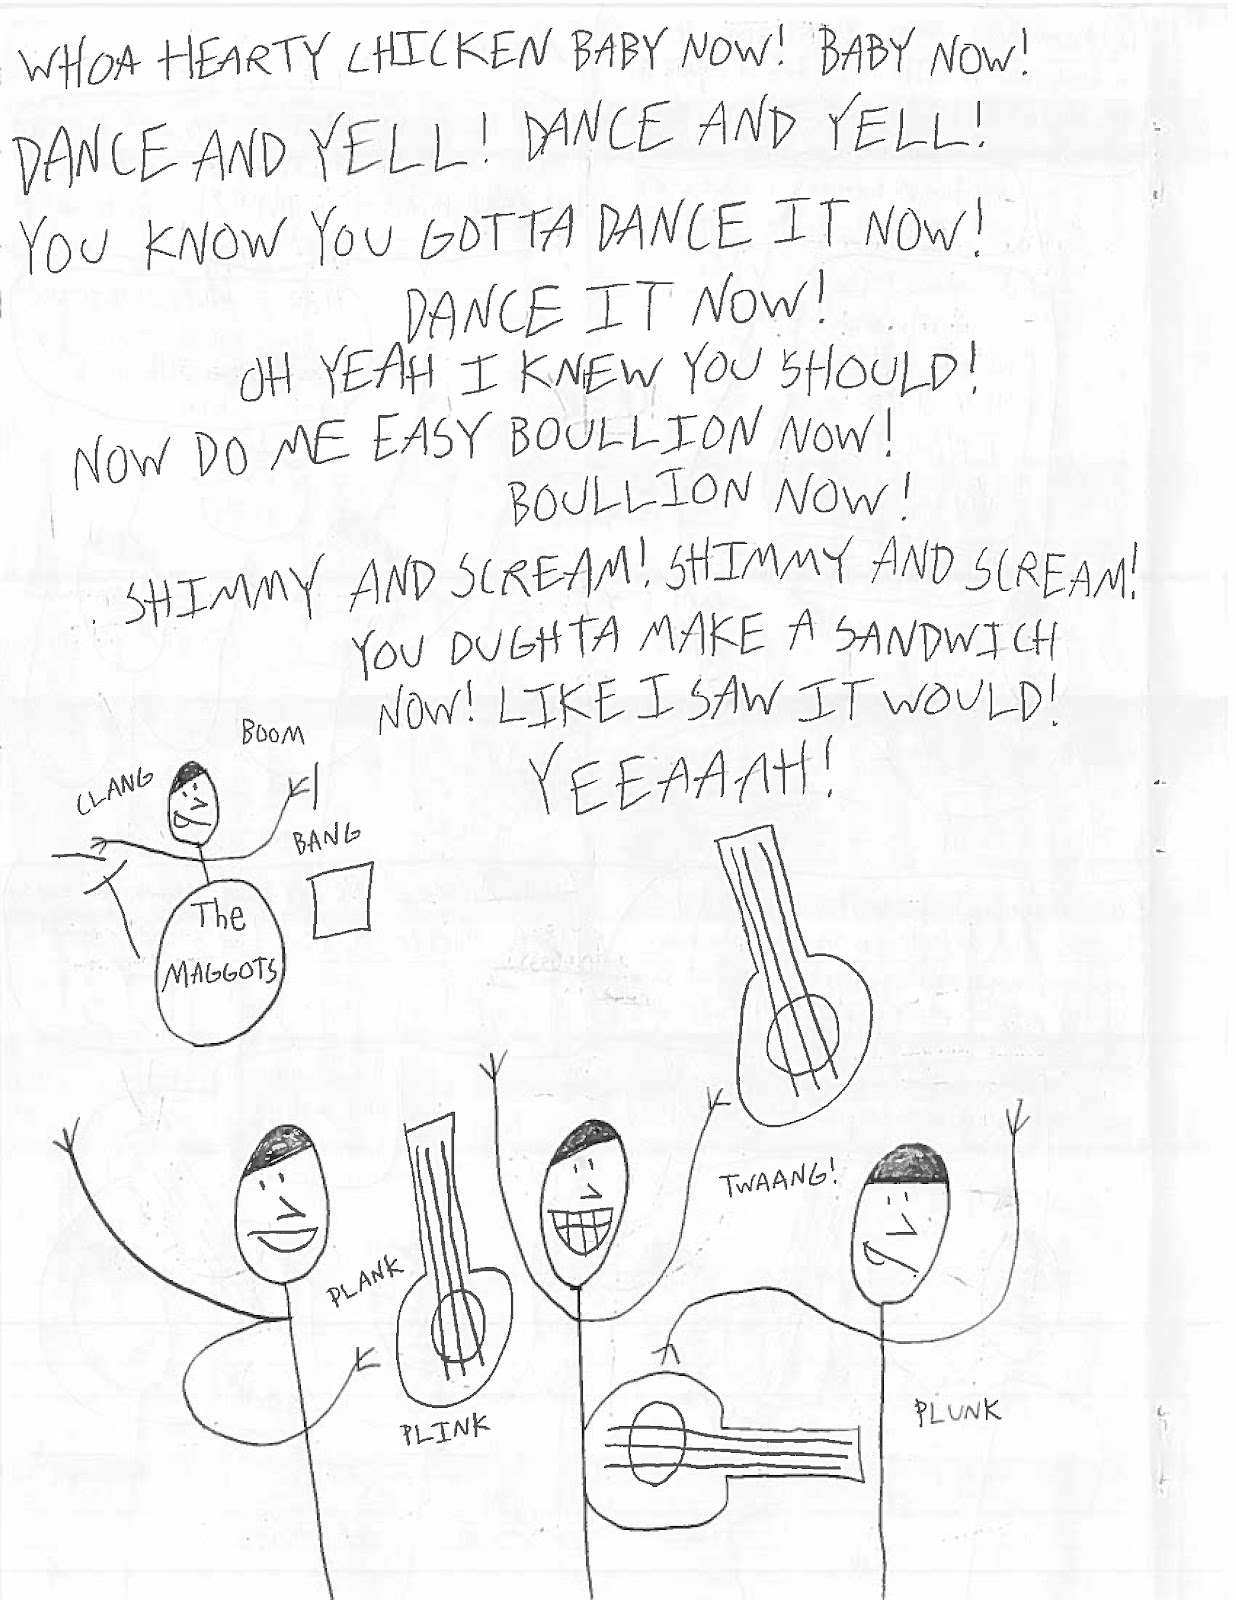 WHOA HEARTY CHICKEN BABY NOW! BABY NOW!
DANCE AND YELL! DANCE AND YELL!
YOU KNOW YOU GOTTA DANCE IT NOW!
DANCE IT NOW!
OH YEAH I KNEW YOU SHOULD!
NOW DO ME EASY BOULLION NOW!
BOULLION NOW!
SHIMMY AND SCREAM! SHIMMY AND SCREAM!
YOU OUGHTA MAKE A SANDWICH
NOW! LIKE I SAW IT WOULD!
YEEAAAH!
BOOM
CLANG
BANG
The
MAGGOTS
TWAANG!
PLANK
PLINK
PLUNK